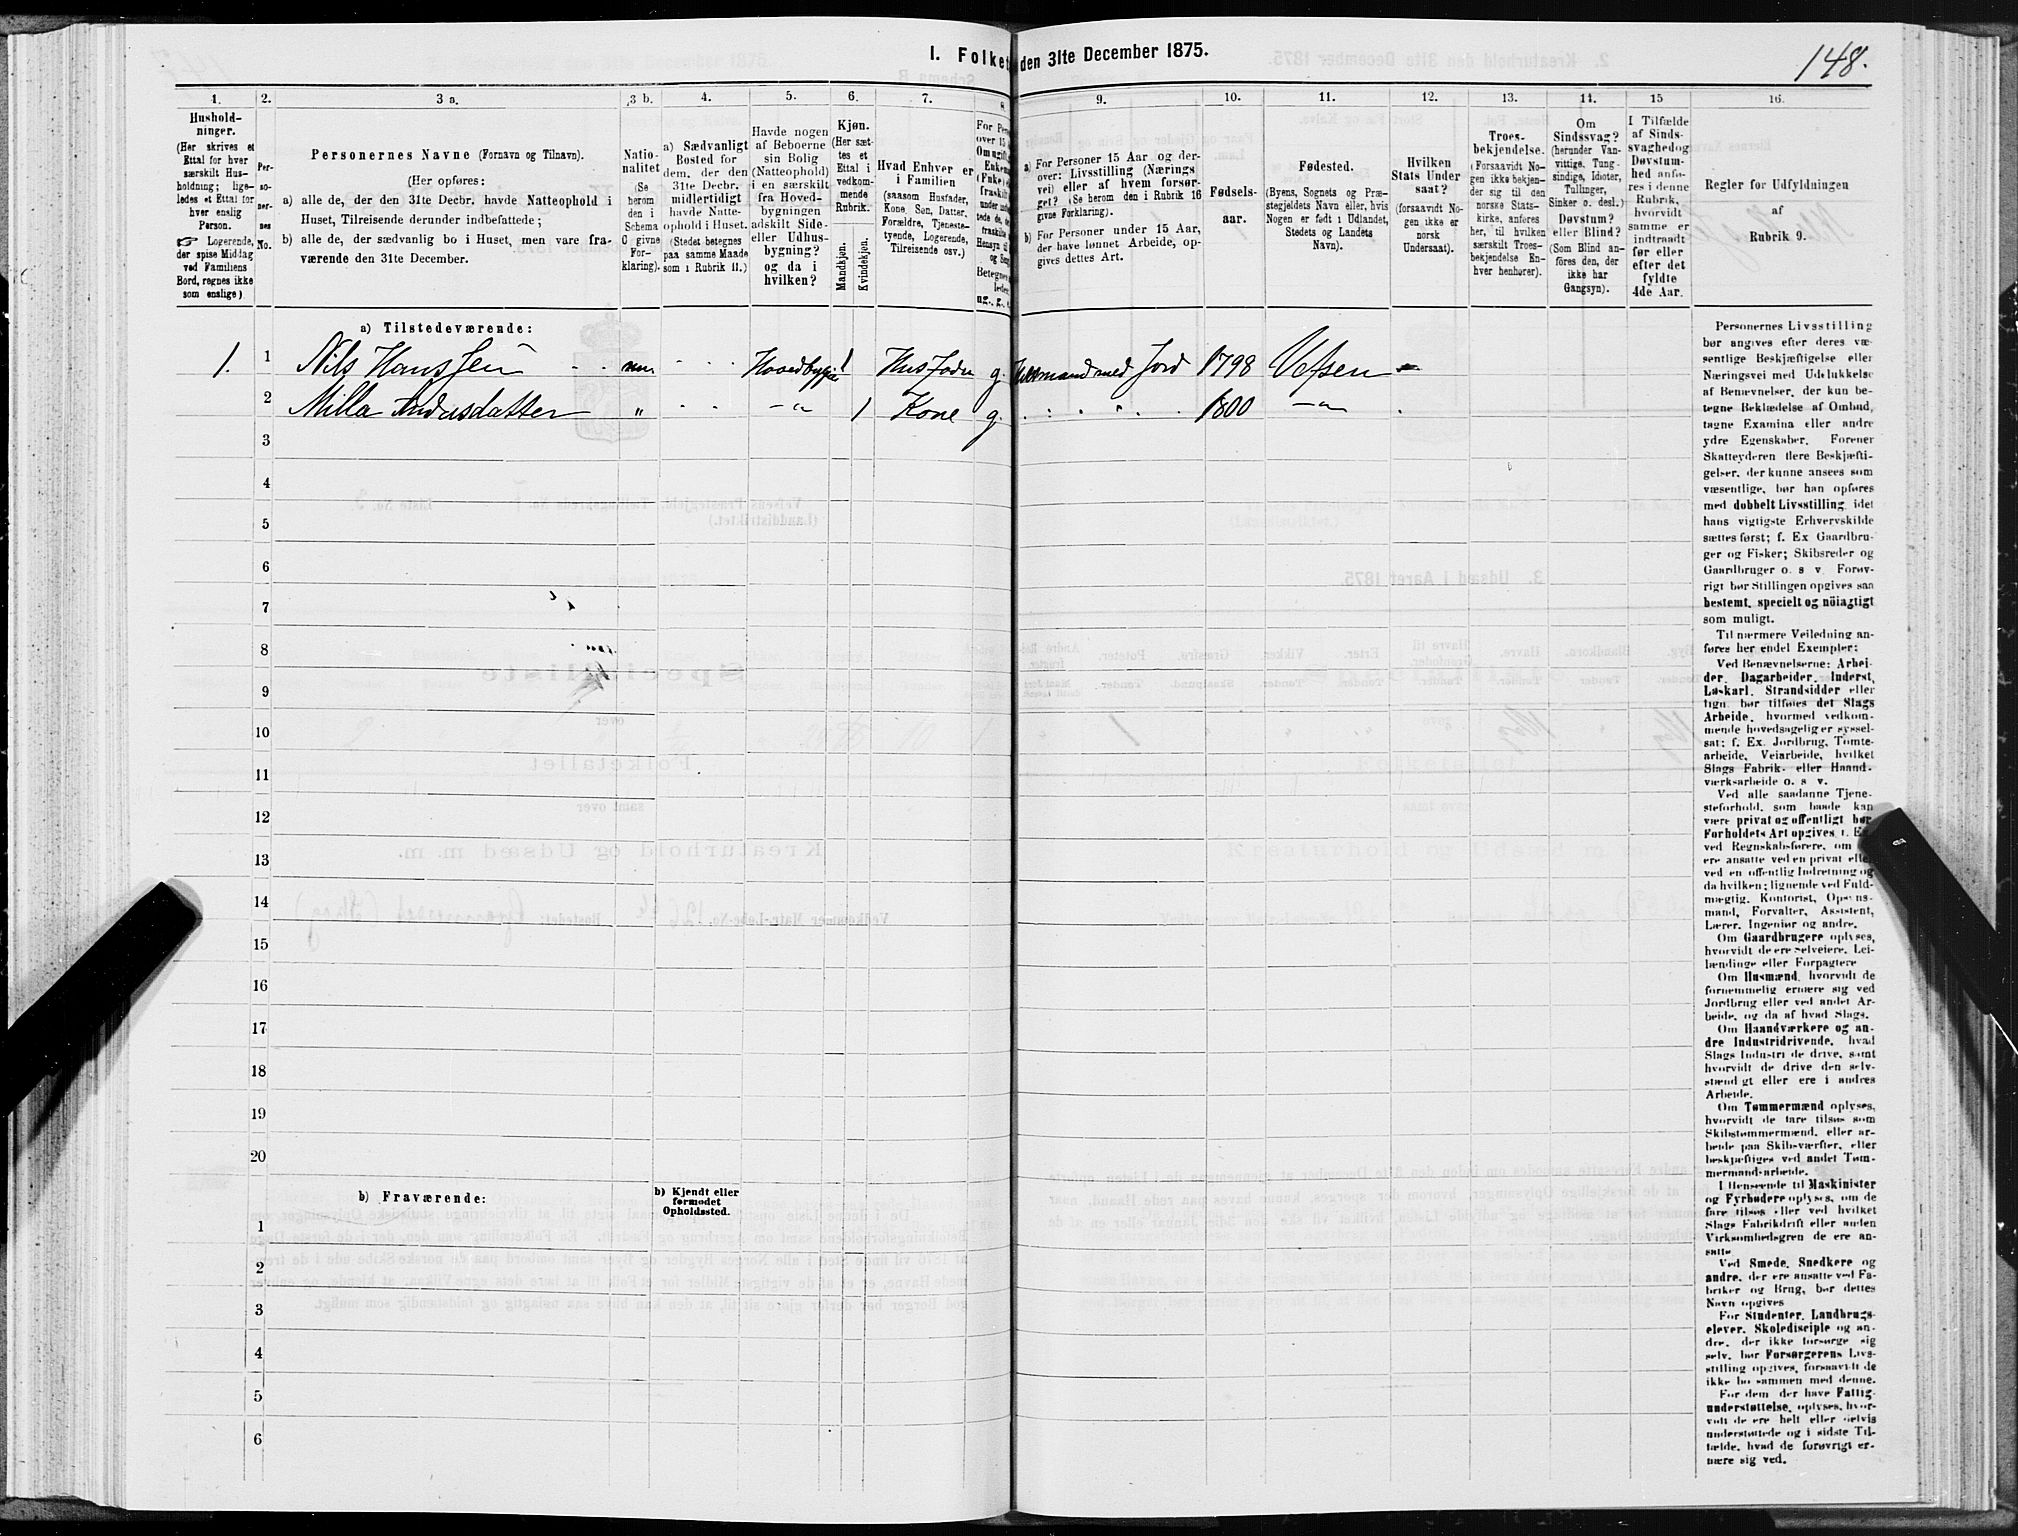 I. Folket den 31te December 1875.
148.
1.
2.
3 a.
3 b.
4.
5.
6.
7.
8.
9.
10.
11.
12.
13.
14.
15
16.
Hushold-
ninger.
(Her skrives et
Ettal for hver
særskilt Hus-
holdning; lige-
ledes et Ettal for
hver enslig
Person.
☞ Logerende,
der spise Middag
ved Familiens
Bord, regnes ikke
som enslige)
Per-
so-
ner-
nes
No.
Personernes Navne (Fornavn og Tilnavn).
(Her opføres:
a) alle de, der den 31te Decbr. havde Natteophold i
Huset, Tilreisende derunder indbefattede;
b) alle de, der sædvanlig bo i Huset, men vare fra-
værende den 31te December.
Natio-
nalitet
(Se
herom
den i
Schema
C givne
For-
klaring).
a) Sædvanligt
Bosted for
dem, der den
31te Decbr.
midlertidigt
havde Natte-
ophold i Huset.
(Stedet betegnes
paa samme Maade
som i Rubrik 11.)
Havde nogen
af Beboerne
sin Bolig
(Natteophold)
i en særskilt
fra Hoved-
bygningen
adskilt Side-
eller Udhus-
bygning?
og da i
hvilken?
Kjøn.
(Her sæt-
tes et
Ettal i
vedkom-
mende
Rubrik.
Mandkjøn.
Kvindekjøn.
Hvad Enhver er
i Familien
(saasom Husfader,
Kone, Søn, Datter,
Forældre, Tjeneste-
tyende, Logerende,
Tilreisende osv.)
a) For Personer 15 Aar og der-
over: Livsstilling (Nærings
vei) eller af hvem forsør-
get? (Se herom den i Rubrik 16
givne Forklaring).
b) For Personer under 15 Aar,
der have lønnet Arbeide, op-
gives dettes Art.
Fødsels-
aar.
Fødested.
(Byens, Sognets og Præ-
stegjeldets Navn eller, hvis
Nogen er født i Udlandet,
Stedets og Landets
Navn).
Hvilken
Stats Under
saat?
(forsaavidt No-
gen ikke er
norsk
Undersaat).
Troes-
bekjendelse.
(Forsaavidt No-
gen ikke bekjen-
der sig til den
norske Stats-
kirke, anføres
her, til hvilken
særskilt Troes-
bekjendelse En-
hver henhører).
Om
Sindssvag?
(herunder Van-
vittige, Tung-
sindige, Idioter,
Tullinger,
Sinker o. desl.)
Døvstum?
eller Blind?
(Som Blind an-
føres den, der
ikke har
Gangsyn).
I Tilfælde
af Sinds-
svaghed og
Døvstum-
hed anfø-
res i denne
Rubrik,
hvorvidt
samme er
indtraadt
før eller
efter det
fyldte
4de Aar.
Regler for Udfyldningen
af
Rubrik 9.
a) Tilstedeværende:
1. 1 Nils Hanssen nn. Hovedbygn 1 Husfader g. Husmand med Jord 1798 Vefsen -
2 Milla Andersdatter " - " - 1 Kone g. 1800 - " -
3
4
5
6
7
8
9
10
11
12
13
14
15
16
17
18
19
20
b) Fraværende:
b) Kjendt eller
formodet
Opholdssted.
1
2
3
4
5
6
Personernes Livsstilling
bør angives efter deres væ-
sentlige Beskjæftigelse eller
Næringsvei med Udelukkelse
af Benævnelser, der kun be-
tegne Beklædelse af Ombud,
tagne Examina eller andre
ydre Egenskaber. Forener
Skatteyderen flere Beskjæfti-
gelser, der kunne ansees som
væsentlige, bør han opføres
med dobbelt Livsstilling, idet
hans vigtigste Erhvervskilde
sættes først; f. Ex Gaardbru-
ger og Fisker; Skibsreder og
Gaardbruger o. s v. Forøv-
rigt bør Stillingen opgives saa
bestemt, specielt og nöiagtigt
som muligt.
Til nærmere Veiledning an-
føres her endel Exempler:
Ved Benævnelserne: Arbei-
der, Dagarbeider, Inderst,
Løskarl, Strandsidder eller
lign. bør tilføies det Slags
Arbeide, hvormed vedkom-
mende hovedsagelig er syssel-
sat; f. Ex. Jordbrug, Tomte-
arbeide, Veiarbeide, hvilket
Slags Fabrik- eller Haand-
værksarbeide o. s v.
Ved alle saadanne Tjene-
steforhold, som baade kan
være privat og offentligt bør
Forholdets Art opgives, f. Ex.
ved Regnskabsførere, om de
ere ansatte ved en privat eller
ved en offentlig Indretning og
da hvilken; lignende ved Fuld-
mægtig, Kontorist, Opsyns-
mand, Forvalter, Assistent,
Lærer, Ingeniør og andre.
Om Gaardbrugere oplyses,
hvorvidt de ere Selveiere, Lei-
lændinge eller Forpagtere
Om Husmænd, hvorvidt de
fornemmelig ernære sig ved
Jordbrug eller ved andet Ar-
beide, og da af hvad Slags.
Om Haandværkere og an-
dre Industridrivende, hvad
Slags Industri de drive, samt
hvorvidt de drive den selv-
stændigt eller ere i andres
Arbeide.
Om Tømmermænd oplyses,
hvorvidt de fare tilsøs som
Skibstømmermænd, eller ar-
beide paa Skibsværfter, eller
beskjæftiges ved andet Tøm-
mermandsarbeide.
I Henseende til Maskinister
og Fyrbødere oplyses, om de
fare tilsøs eller ved hvilket
Slags Fabrikdrift eller anden
Virksomhedsgren de ere an-
satte
Ved Smede, Snedkere og
andre, der ere ansatte ved Fa-
briker og Brug, bør dettes
Navn opgives
For Studenter, Landbrugs-
elever, Skoledisciple og an-
dre, der ikke forsørge sig
selv, bør Forsørgerens Livs-
stilling opgives, forsaavidt de
ikke bo sammen med denne.
For dem der have Fattig-
understøttelse, oplyses, hvor-
vidt de ere helt eller delvis
understøttede og i sidste Til-
fælde, hvad de forøvrigt er-
nære sig ved.